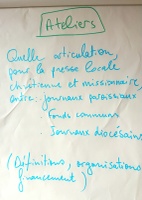 Ateliers
Quelle articulation,
pour la presse locale
chrétienne et missionnaire,
entre : Journaux paroissiaux
. Fonds communs
. Journaux diocésains
(Définitions, organisations
financement)